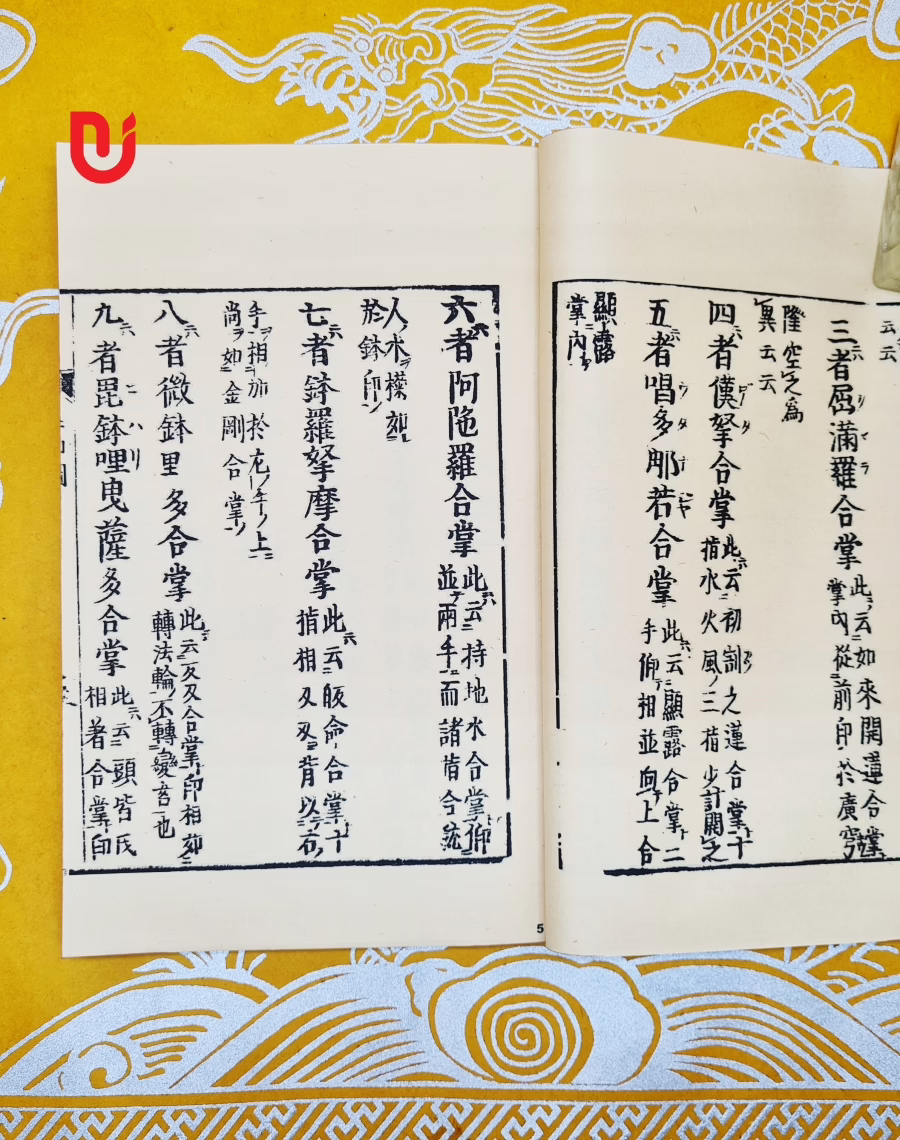 云云
三者屈滿羅合掌
此云如來開蓮合掌
掌内從前印於廣穹
隆空之爲
異云云
四者僕拏合掌
此云初割之蓮合掌十
指水火風三指少計開之
五者唱多那若合掌
此云顯露合掌二
手仰相並向上合
顯露
掌内
六者阿陁羅合掌
此云持地水合掌仰
並兩手而諸指合
人水
於鉢印
七者鉢羅拏摩合掌
此云皈命合掌十
指相叉又背以右
手相加於左手上
尚如金剛合掌
八者微鉢里多合掌
此云反叉合掌印相
轉法輪不轉變者也
九者毘鉢哩曳薩多合掌
此云頭皆
相着合掌印
5